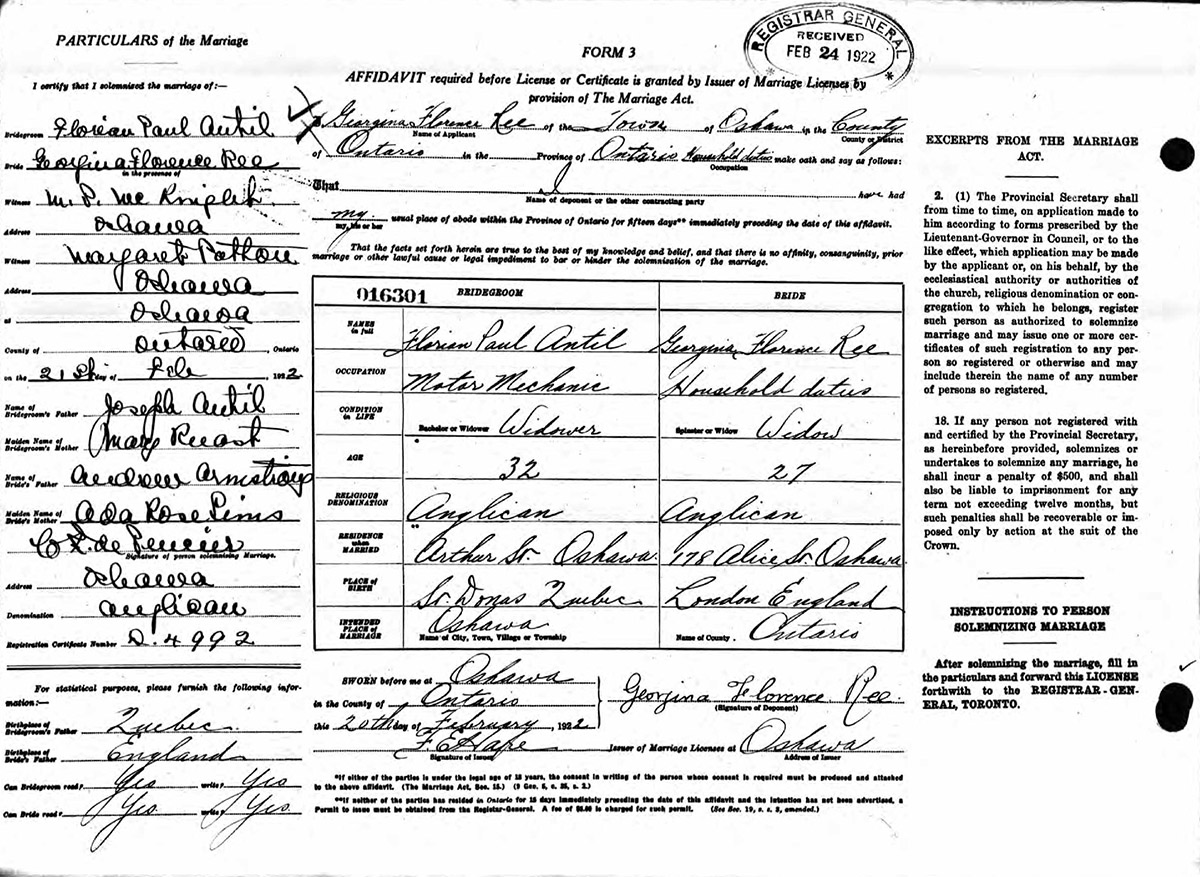 PARTICULARS of the Marriage
I certify that I solemnised the marriage of:—
Bridegroom Florian Paul Antil
Bride Georgina Florence Ree
in the presence of
Witness M. P. Mc Knight
Address Oshawa
Witness Margaret Pathon
Address Oshawa
at Oshawa
County of Ontario, Ontario
on the 21st day of Feb 1922
Name of Bridegroom's Father Joseph Antil
Maiden Name of Bridegroom's Mother Mary
Name of Bride's Father Andrew Armstrong
Maiden Name of Bride's Mother Ada Rose Sims
C. R. de Pencier
Signature of person solemnizing Marriage.
Address Oshawa
Denomination Anglican
Registration Certificate Number D. 4992
For statistical purposes, please furnish the following infor-
mation:—
Birthplace of Bridegroom's Father Quebec
Birthplace of Bride's Father England
Can Bridegroom read? Yes write? Yes
Can Bride read? Yes write? Yes
REGISTRAR GENERAL
RECEIVED
FEB 24 1922
FORM 3
AFFIDAVIT required before License or Certificate is granted by Issuer of Marriage Licenses by
provision of The Marriage Act.
I, Georgina Florence Ree of the Town of Oshawa in the County
Name of Applicant County or District
of Ontario in the Province of Ontario Household duties make oath and say as follows:
Occupation
That I have had
Name of deponent or the other contracting party
my usual place of abode within the Province of Ontario for fifteen days** immediately preceding the date of this affidavit.
my, his or her
That the facts set forth herein are true to the best of my knowledge and belief, and that there is no affinity, consanguinity, prior
marriage or other lawful cause or legal impediment to bar or hinder the solemnisation of the marriage.
016301 BRIDEGROOM BRIDE
NAMES in full Florian Paul Antil Georgina Florence Ree
OCCUPATION Motor Mechanic Household duties
CONDITION in LIFE Bachelor or Widower Widower Spinster or Widow Widow
AGE 32 27
RELIGIOUS DENOMINATION Anglican Anglican
RESIDENCE when MARRIED Arthur St. Oshawa. 178 Alice St. Oshawa.
PLACE of BIRTH St. Donas Quebec London England
INTENDED PLACE of MARRIAGE Oshawa Ontario
Name of City, Town, Village or Township Name of County.
SWORN before me at Oshawa
in the County of Ontario
this 20th day of February, 1922
Georgina Florence Ree.
(Signature of Deponent)
F. E. Hare Issuer of Marriage Licenses at Oshawa
Signature of Issuer Address of Issuer
*If either of the parties is under the legal age of 18 years, the consent in writing of the person whose consent is required must be produced and attached
to the above affidavit. (The Marriage Act, Sec. 15.)
**If neither of the parties has resided in Ontario for 15 days immediately preceding the date of this affidavit and the intention has not been advertised, a
Permit to issue must be obtained from the Registrar-General. A fee of is charged for such permit. (See Sec. 19, amended.)
EXCERPTS FROM THE MARRIAGE
ACT.
2. (1) The Provincial Secretary shall
from time to time, on application made to
him according to forms prescribed by the
Lieutenant-Governor in Council, or to the
like effect, which application may be made
by the applicant or, on his behalf, by the
ecclesiastical authority or authorities of
the church, religious denomination or con-
gregation to which he belongs, register
such person as authorized to solemnize
marriage and may issue one or more cer-
tificates of such registration to any per-
son so registered or otherwise and may
include therein the name of any number
of persons so registered.
18. If any person not registered with
and certified by the Provincial Secretary,
as hereinbefore provided, solemnizes or
undertakes to solemnize any marriage, he
shall incur a penalty of $500, and shall
also be liable to imprisonment for any
term not exceeding twelve months, but
such penalties shall be recoverable or im-
posed only by action at the suit of the
Crown.
INSTRUCTIONS TO PERSON
SOLEMNIZING MARRIAGE
After solemnizing the marriage, fill in
the particulars and forward this LICENSE
forthwith to the REGISTRAR-GEN-
ERAL, TORONTO.